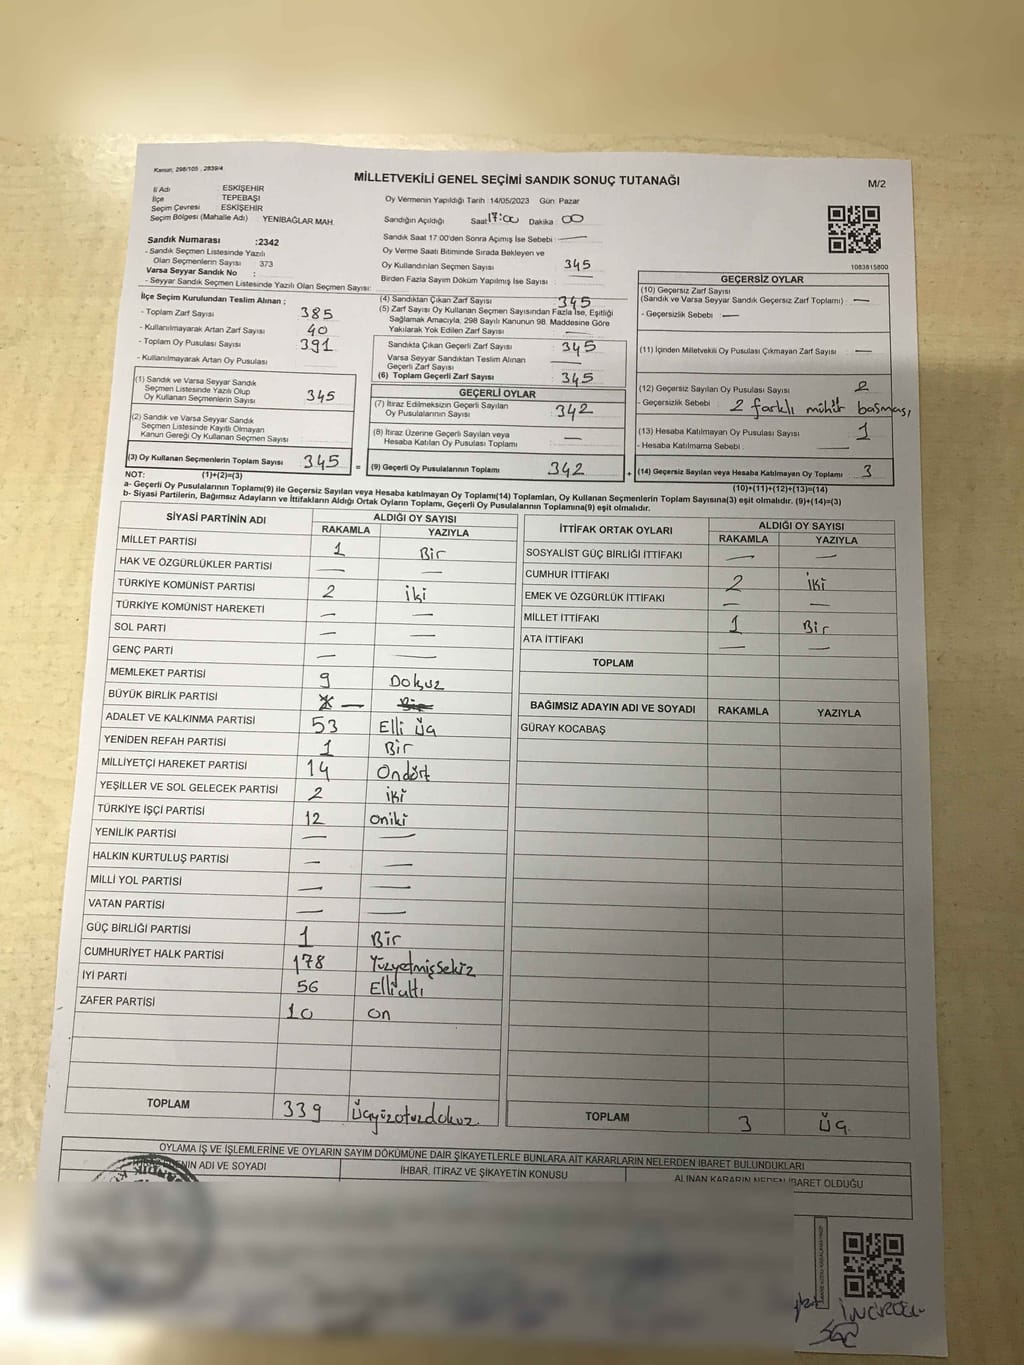 Kanun: 298/105 , 2839/4
MİLLETVEKİLİ GENEL SEÇİMİ SANDIK SONUÇ TUTANAĞI
M/2
İl Adı : ESKİŞEHİR
İlçe : TEPEBAŞI
Seçim Çevresi : ESKİŞEHİR
Seçim Bölgesi (Mahalle Adı) : YENİBAĞLAR MAH.
Oy Vermenin Yapıldığı Tarih : 14/05/2023 Gün: Pazar
Sandığın Açıldığı Saat: 17:00 Dakika : 00
Sandık Saat 17:00'den Sonra Açımış İse Sebebi : —
Sandık Numarası :2342
- Sandık Seçmen Listesinde Yazılı
Olan Seçmenlerin Sayısı 373
Varsa Seyyar Sandık No :
- Seyyar Sandık Seçmen Listesinde Yazılı Olan Seçmen Sayısı:
Oy Verme Saati Bitiminde Sırada Bekleyen ve
Oy Kullandırılan Seçmen Sayısı 345
Birden Fazla Sayım Döküm Yapılmış İse Sayısı : —
1083815800
İlçe Seçim Kurulundan Teslim Alınan ;
- Toplam Zarf Sayısı : 385
- Kullanılmayarak Artan Zarf Sayısı : 40
- Toplam Oy Pusulası Sayısı : 391
- Kullanılmayarak Artan Oy Pusulası :
(1) Sandık ve Varsa Seyyar Sandık
Seçmen Listesinde Yazılı Olup
Oy Kullanan Seçmenlerin Sayısı : 345
(2) Sandık ve Varsa Seyyar Sandık
Seçmen Listesinde Kayıtlı Olmayan
Kanun Gereği Oy Kullanan Seçmen Sayısı :
(3) Oy Kullanan Seçmenlerin Toplam Sayısı : 345
(1)+(2)=(3)
(4) Sandıktan Çıkan Zarf Sayısı : 345
(5) Zarf Sayısı Oy Kullanan Seçmen Sayısından Fazla İse, Eşitliği
Sağlamak Amacıyla, 298 Sayılı Kanunun 98. Maddesine Göre
Yakılarak Yok Edilen Zarf Sayısı : —
Sandıkta Çıkan Geçerli Zarf Sayısı : 345
Varsa Seyyar Sandıktan Teslim Alınan
Geçerli Zarf Sayısı : —
(6) Toplam Geçerli Zarf Sayısı : 345
GEÇERLİ OYLAR
(7) İtiraz Edilmeksizin Geçerli Sayılan
Oy Pusulalarının Sayısı : 342
(8) İtiraz Üzerine Geçerli Sayılan veya
Hesaba Katılan Oy Pusulası Toplamı : —
= (9) Geçerli Oy Pusulalarının Toplamı : 342
GEÇERSİZ OYLAR
(10) Geçersiz Zarf Sayısı
(Sandık ve Varsa Seyyar Sandık Geçersiz Zarf Toplamı) : —
- Geçersizlik Sebebi : —
(11) İçinden Milletvekili Oy Pusulası Çıkmayan Zarf Sayısı : —
(12) Geçersiz Sayılan Oy Pusulası Sayısı : 2
- Geçersizlik Sebebi : 2 farklı mühür basması
(13) Hesaba Katılmayan Oy Pusulası Sayısı : 1
- Hesaba Katılmama Sebebi : —
+ (14) Geçersiz Sayılan veya Hesaba Katılmayan Oy Toplamı : 3
(10)+(11)+(12)+(13)=(14)
NOT:
a- Geçerli Oy Pusulaları Toplamı(9) ile Geçersiz Sayılan veya Hesaba katılmayan Oy Toplamı(14) Toplamları, Oy Kullanan Seçmenlerin Toplam Sayısına(3) eşit olmalıdır. (9)+(14)=(3)
b- Siyasi Partilerin, Bağımsız Adayların ve İttifakların Aldığı Ortak Oyların Toplamı, Geçerli Oy Pusulalarının Toplamına(9) eşit olmalıdır.
SİYASİ PARTİNİN ADI ALDIĞI OY SAYISI
RAKAMLA YAZIYLA
MİLLET PARTİSİ 1 Bir
HAK VE ÖZGÜRLÜKLER PARTİSİ — —
TÜRKİYE KOMÜNİST PARTİSİ 2 iki
TÜRKİYE KOMÜNİST HAREKETİ — —
SOL PARTİ — —
GENÇ PARTİ — —
MEMLEKET PARTİSİ 9 Dokuz
BÜYÜK BİRLİK PARTİSİ —
ADALET VE KALKINMA PARTİSİ 53 Elli üç
YENİDEN REFAH PARTİSİ 1 Bir
MİLLİYETÇİ HAREKET PARTİSİ 14 Ondört
YEŞİLLER VE SOL GELECEK PARTİSİ 2 iki
TÜRKİYE İŞÇİ PARTİSİ 12 oniki
YENİLİK PARTİSİ — —
HALKIN KURTULUŞ PARTİSİ — —
MİLLİ YOL PARTİSİ — —
VATAN PARTİSİ — —
GÜÇ BİRLİĞİ PARTİSİ 1 Bir
CUMHURİYET HALK PARTİSİ 178 Yüzyetmişsekiz
İYİ PARTİ 56 Ellialtı
ZAFER PARTİSİ 10 on
TOPLAM 339 üçyüzotuzdokuz
İTTİFAK ORTAK OYLARI ALDIĞI OY SAYISI
RAKAMLA YAZIYLA
SOSYALİST GÜÇ BİRLİĞİ İTTİFAKI — —
CUMHUR İTTİFAKI 2 iki
EMEK VE ÖZGÜRLÜK İTTİFAKI — —
MİLLET İTTİFAKI 1 Bir
ATA İTTİFAKI — —
TOPLAM
BAĞIMSIZ ADAYIN ADI VE SOYADI RAKAMLA YAZIYLA
GÜRAY KOCABAŞ
TOPLAM 3 üç
OYLAMA İŞ VE İŞLEMLERİNE VE OYLARIN SAYIM DÖKÜMÜNE DAİR ŞİKAYETLERLE BUNLARA AİT KARARLARIN NELERDEN İBARET BULUNDUKLARI
ADI VE SOYADI İHBAR, İTİRAZ VE ŞİKAYETİN KONUSU ALINAN KARARIN NEDEN İBARET OLDUĞU